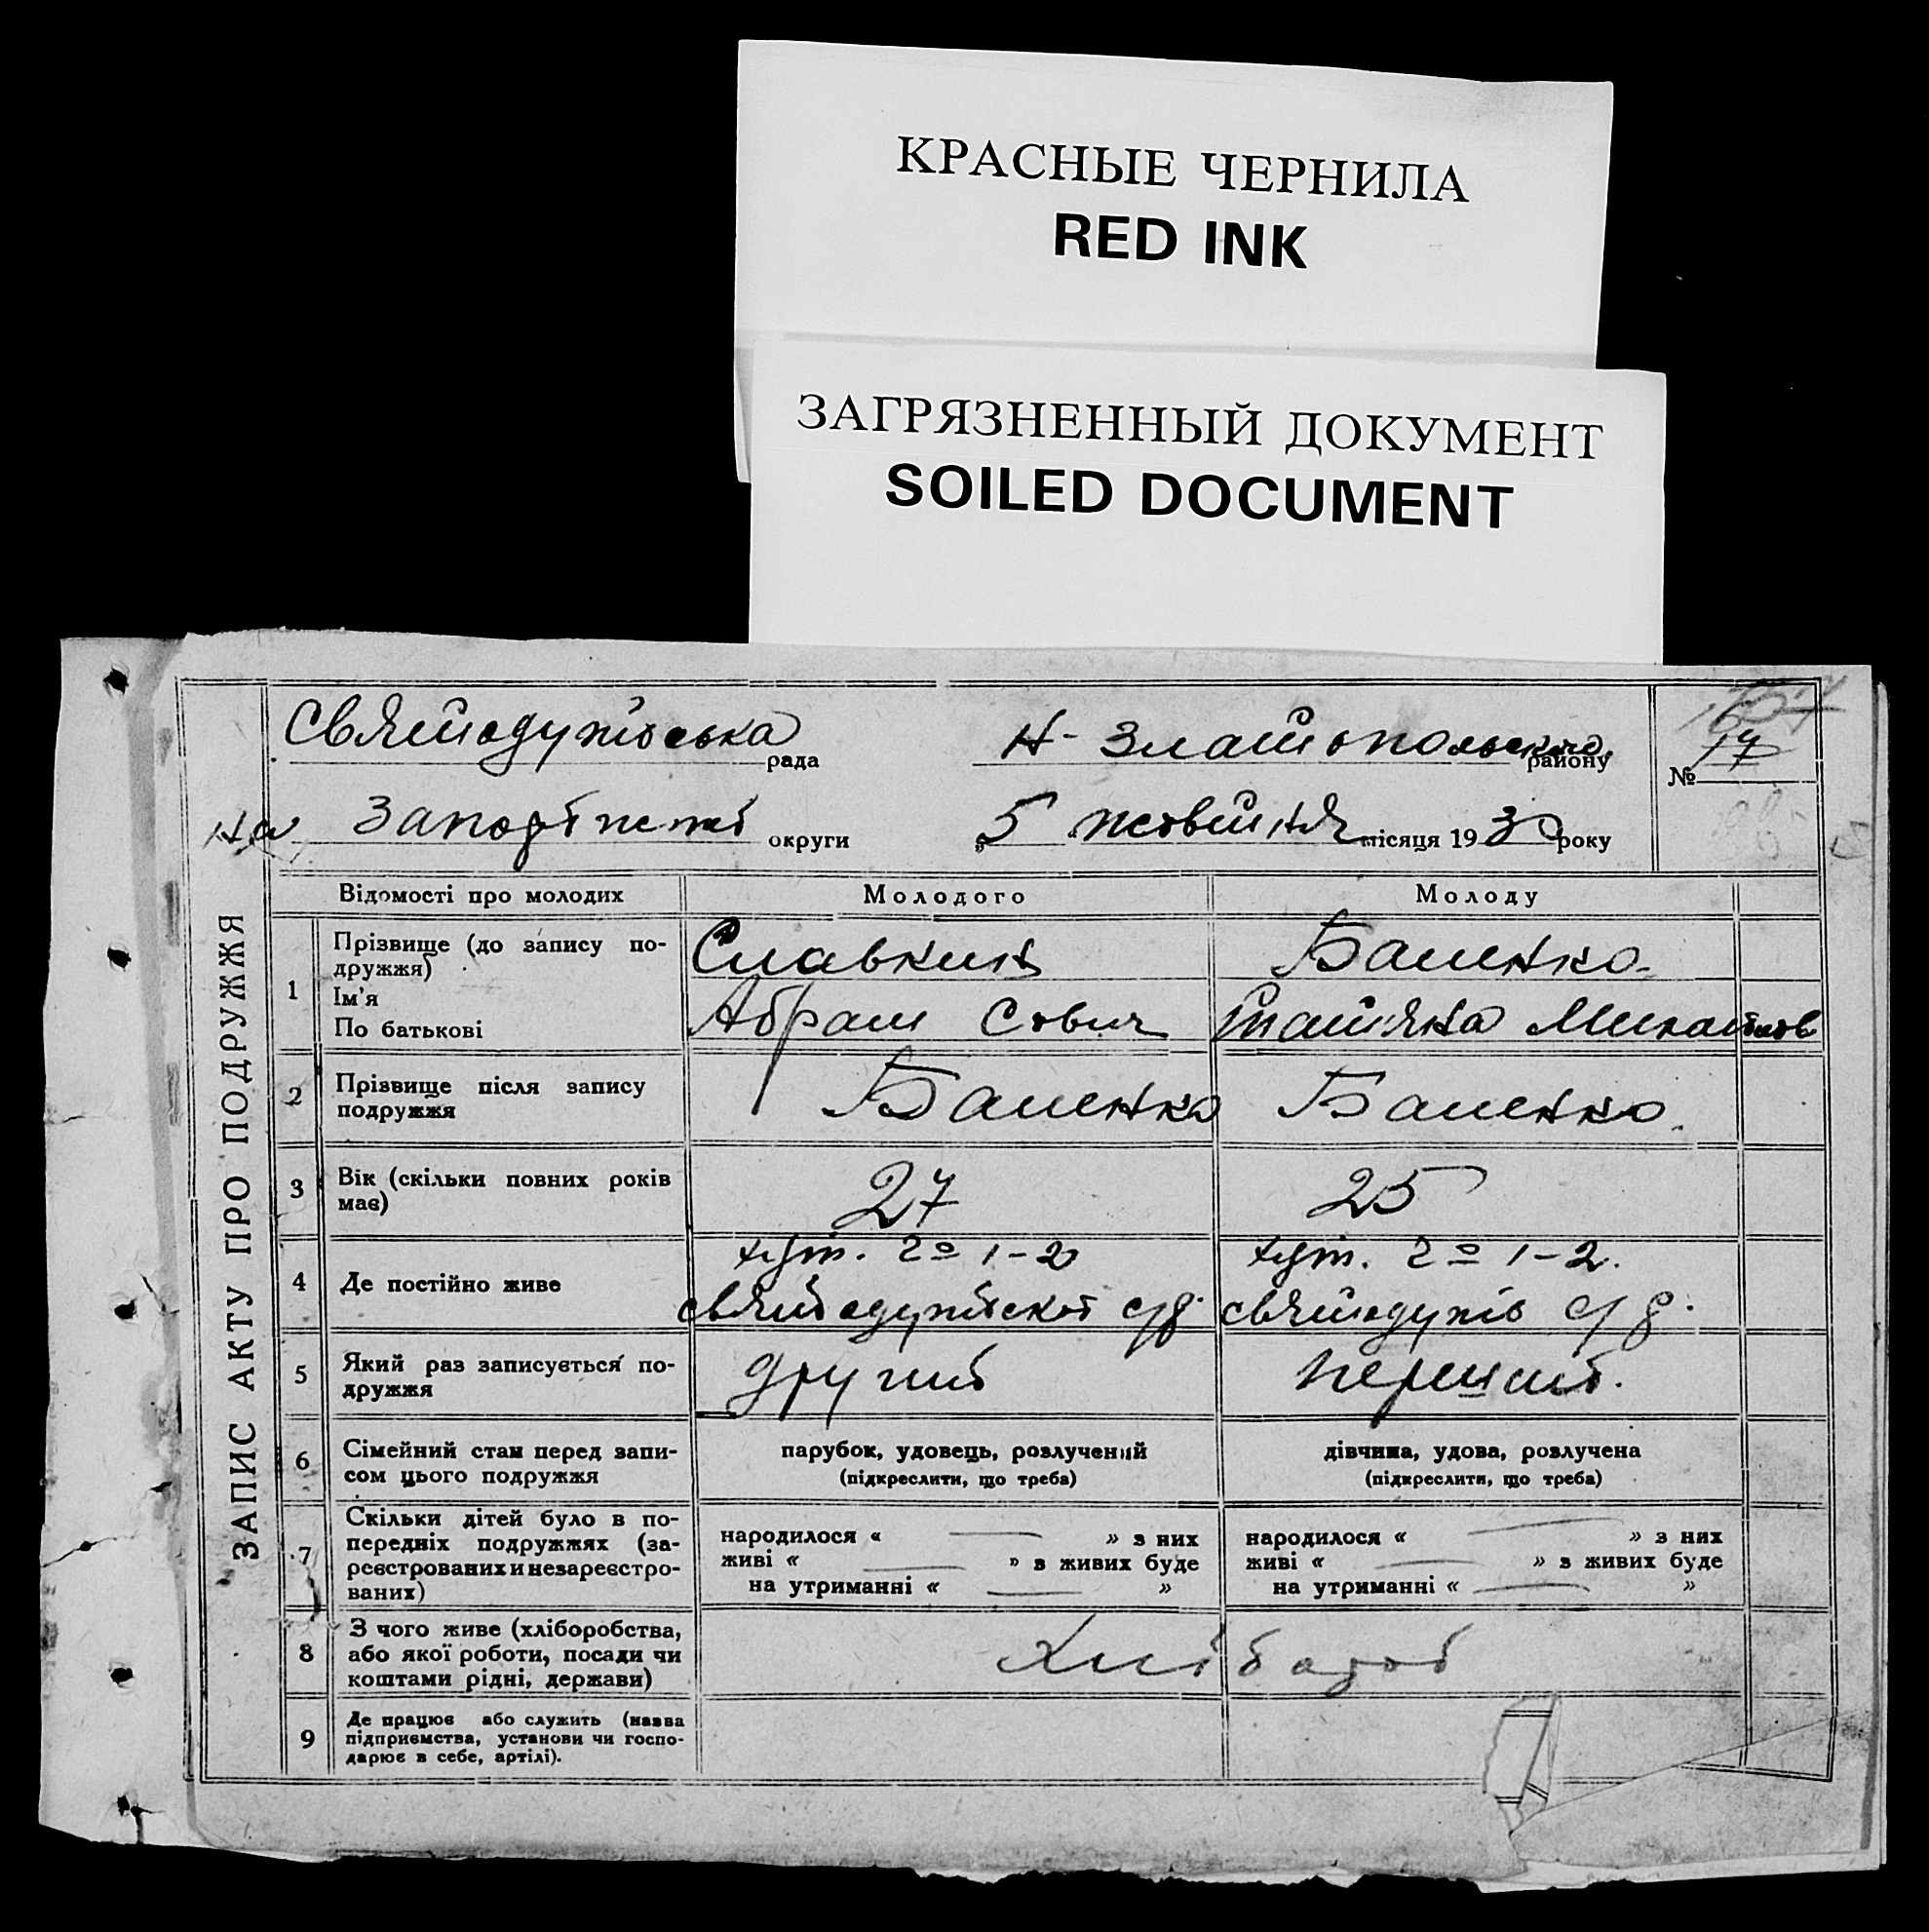 КРАСНЫЕ ЧЕРНИЛА
RED INK
ЗАГРЯЗНЕННЫЙ ДОКУМЕНТ
SOILED DOCUMENT
Святодухівська рада Н- Златопольского району № 17
округи „5 жовтня місяця 1930 року
ЗАПИС АКТУ ПРО ПОДРУЖЖЯ
Відомості про молодих Молодого Молоду
1 Прізвище (до запису по-
дружжя) Славкин Баненко
Ім'я
По батькові Абрам Татяна
2 Прізвище після запису
подружжя Баненко Баненко
3 Вік (скільки повних років
має) 27 25
4 Де постійно живе хут. 1-2 хут. 1-2.
5 Який раз записується по-
дружжя другий перший.
6 Сімейний стан перед запи-
сом цього подружжя
парубок, удовець, розлучений
(підкреслити, що треба)
дівчина, удова, розлучена
(підкреслити, що треба)
7 Скільки дітей було в по-
передніх подружжях (за-
реєстрованих и незареєстро-
ваних)
народилося « — » з них
живі « — » з живих буде
на утриманні « — »
народилося « — » з них
живі « — » з живих буде
на утриманні « — »
8 З чого живе (хліборобства,
або якої роботи, посади чи
коштами рідні, держави)
Хлібороб
9 Де працює або служить (назва
підприємства, установи чи госпо-
дарює в себе, артілі).